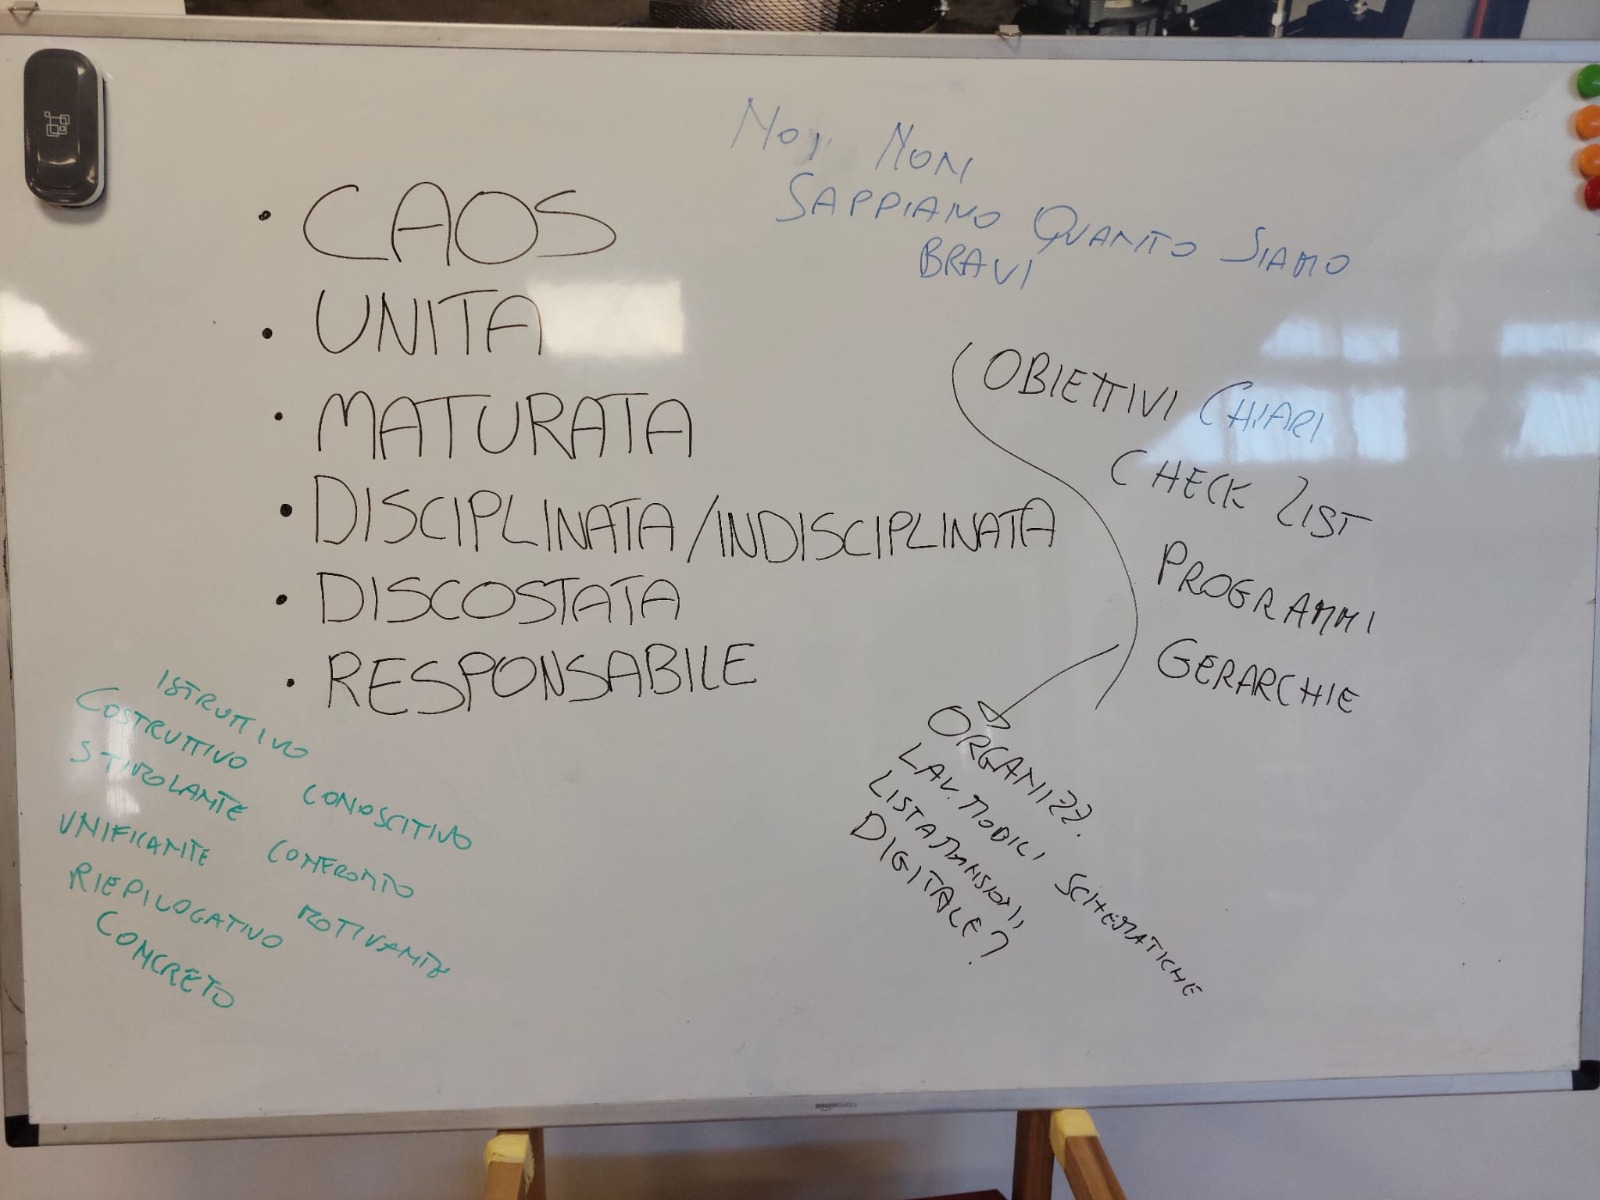 Noi Non
Sappiamo Quanto Siamo
Bravi
• CAOS
• UNITA
• MATURATA
• DISCIPLINATA/INDISCIPLINATA
• DISCOSTATA
• RESPONSABILE
OBIETTIVI CHIARI
CHECK LIST
PROGRAMMI
GERARCHIE
ORGANIZZ.
LAV. MOBILI SCHEMATICHE
LISTA MANSIONI
DIGITALE?
ISTRUTTIVO
COSTRUTTIVO CONOSCITIVO
STIMOLANTE CONFRONTO
UNIFICANTE MOTIVANTE
RIEPILOGATIVO
CONCRETO